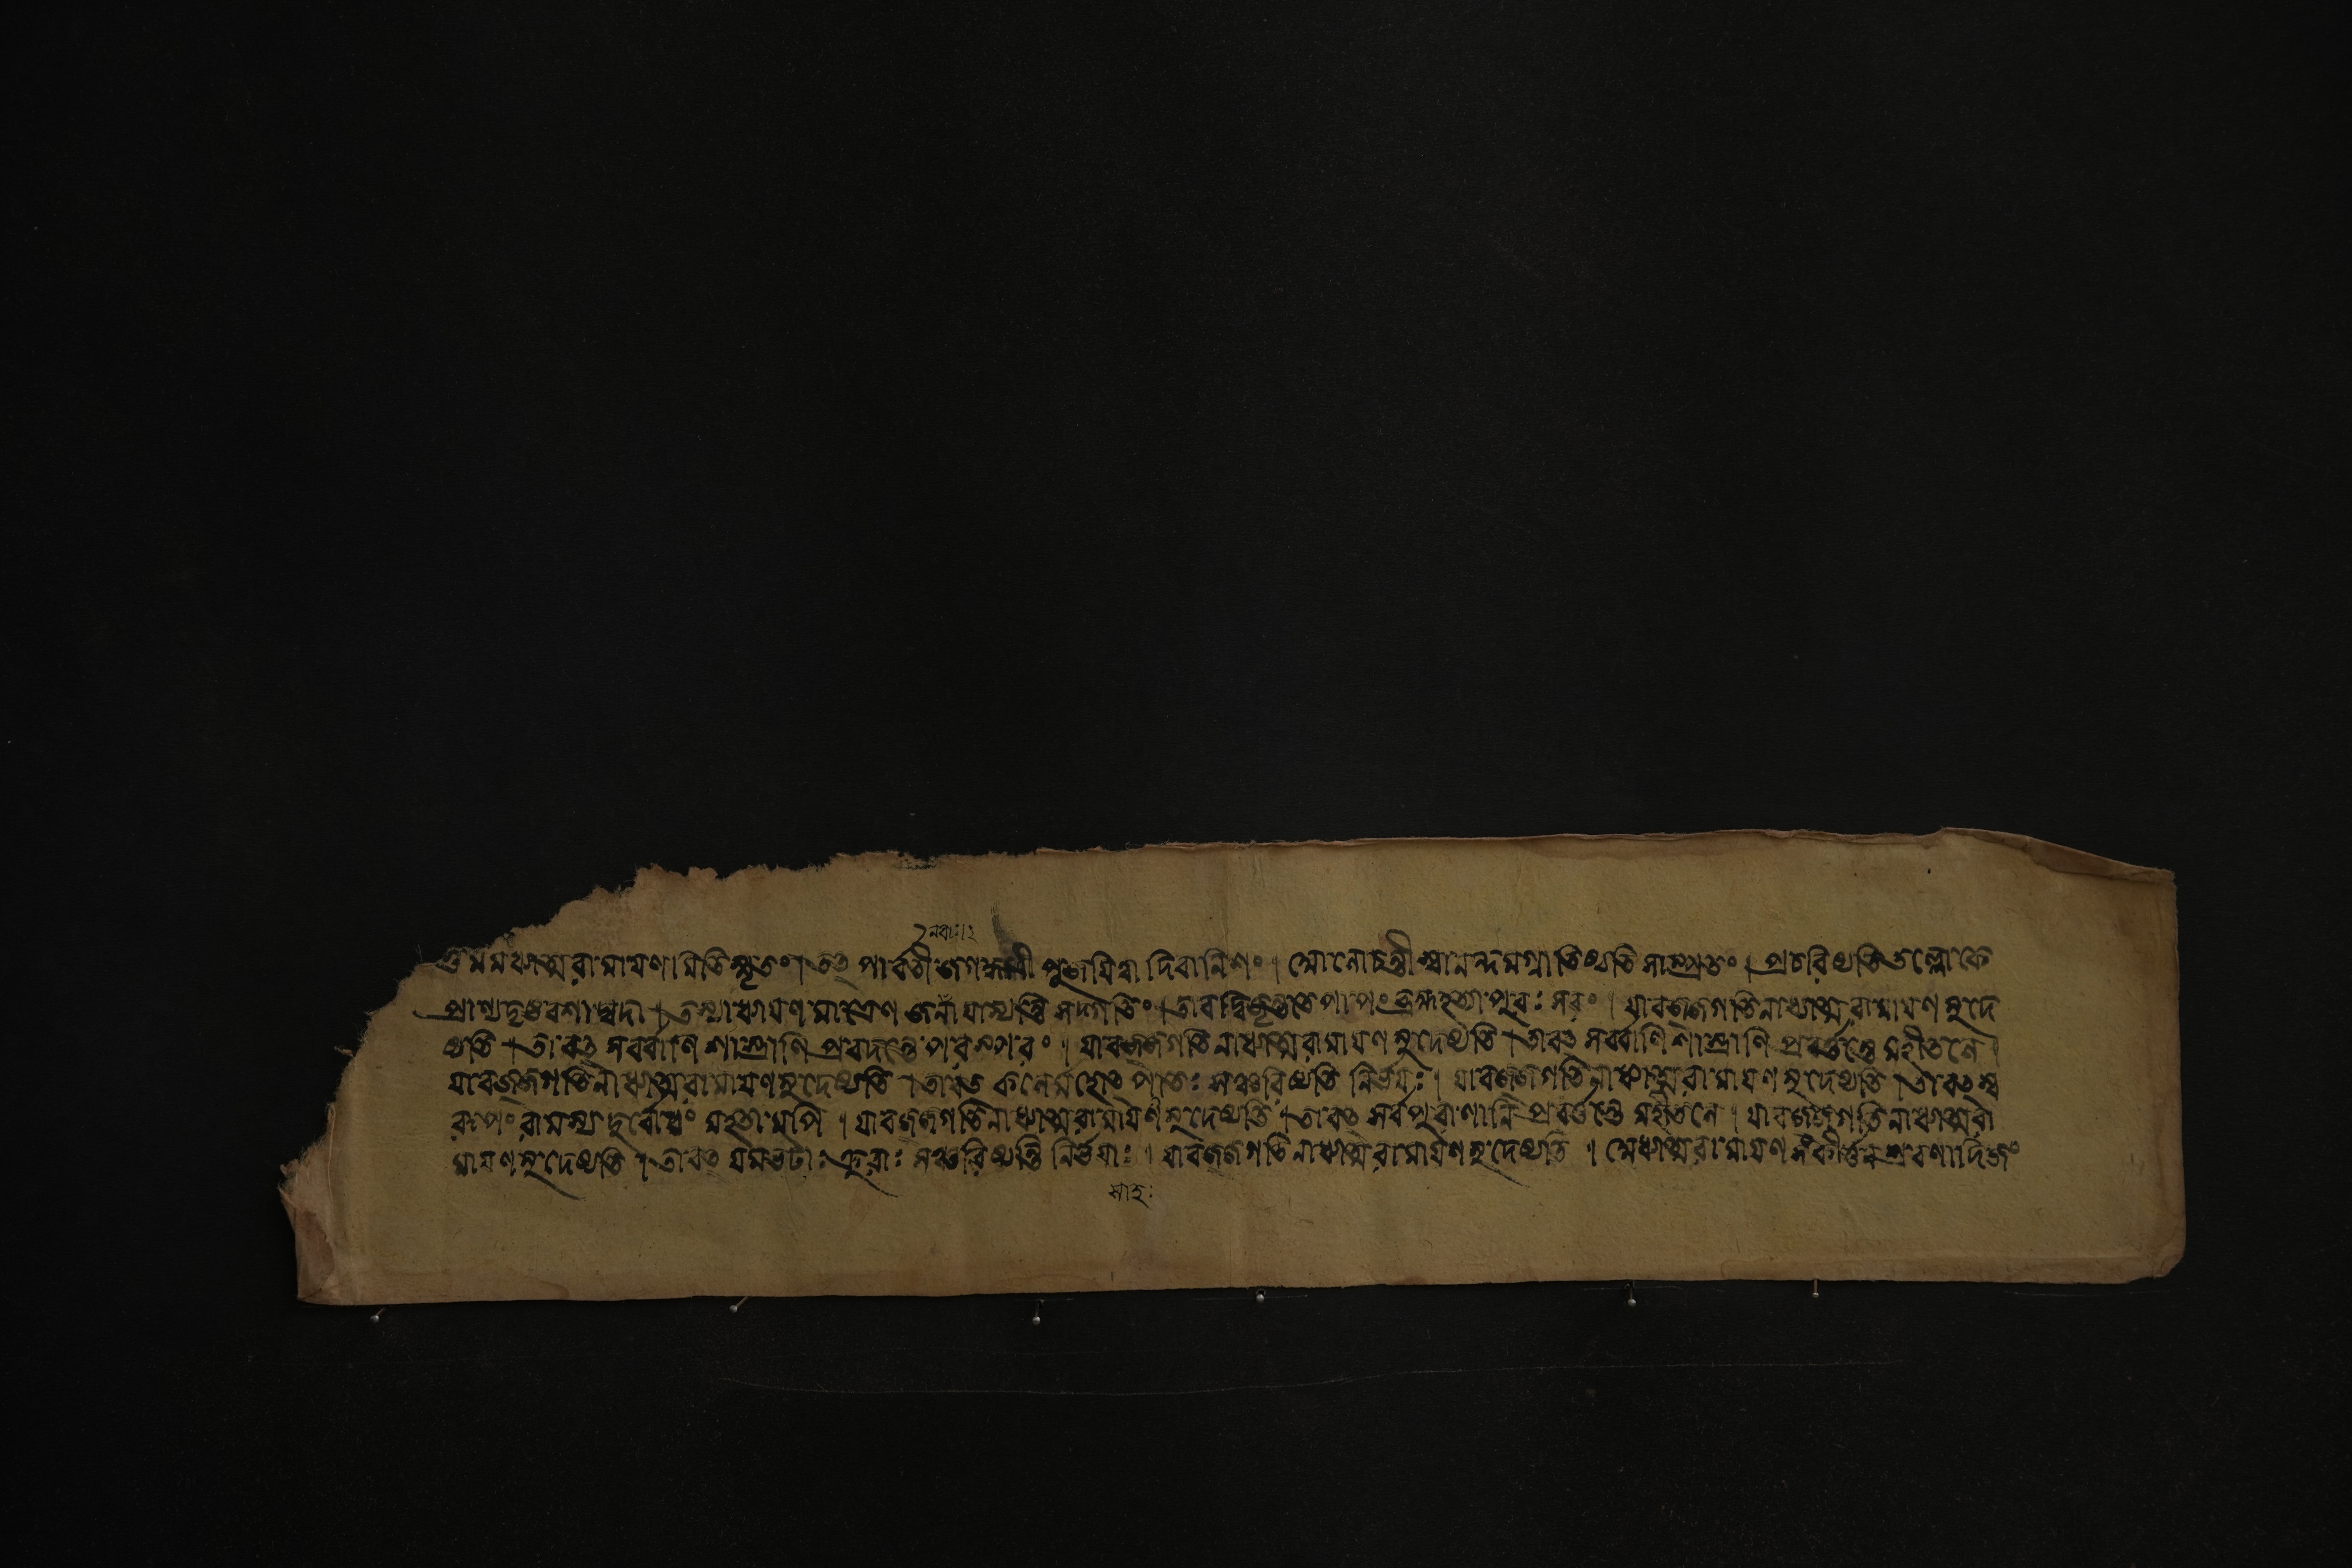 মাহ
ত্তমমধ্যাত্মরামায়ণামিতিস্মৃতং।তত্তু পার্বতী জগদ্ধাত্রী পূজয়িত্বা দিবানিশং। প্রচরিষ্যতিতল্লোকে
প্রাণ্যদৃষ্টবশাদ্যদা।তস্যাধ্যয়ণমাত্রেণ জনাঁ যাস্যন্তি সদ্গতিং।তাবদ্বিজৃম্ভতে পাপং ব্রহ্মহত্যাপুরঃসরং। যাবজ্জগতিনাধ্যাত্মরামায়ণমুদে
ষ্যতি।তাবত্তু সর্ব্বাণি শাস্ত্রাণি প্রবদন্তে পরস্পরং। যাবজ্জগতি নাধ্যাত্মরামায়ণমুদেষ্যতি।তাবত্তু সর্ব্বাণি শাস্ত্রাণি প্রবর্ত্তন্তে মহীতলে।
যাবজ্জগতিনাধ্যাত্মরামায়ণমুদেষ্যতি।তাবত্তু কলের্মহোৎপাতঃ সঞ্চরিষ্যতি নির্ভয়ঃ। যাবজ্জগতিনাধ্যাত্মরামায়ণমুদেষ্যতি।তাবত্তুস্ব
রূপং রামস্য দুর্বোধং মহতামপি। যাবজ্জগতিনাধ্যাত্মরামায়ণমুদেষ্যতি।তাবত্তু সর্বপুরাণানি প্রবর্ত্তন্তে মহীতলে। যাবজ্জগতিনাধ্যাত্মরা
মায়ণমুদেষ্যতি।তাবত্তু যমভটাঃ ক্রূরাঃ সঞ্চরিষ্যন্তি নির্ভয়াঃ। যাবজ্জগতিনাধ্যাত্মরামায়ণমুদেষ্যতি।